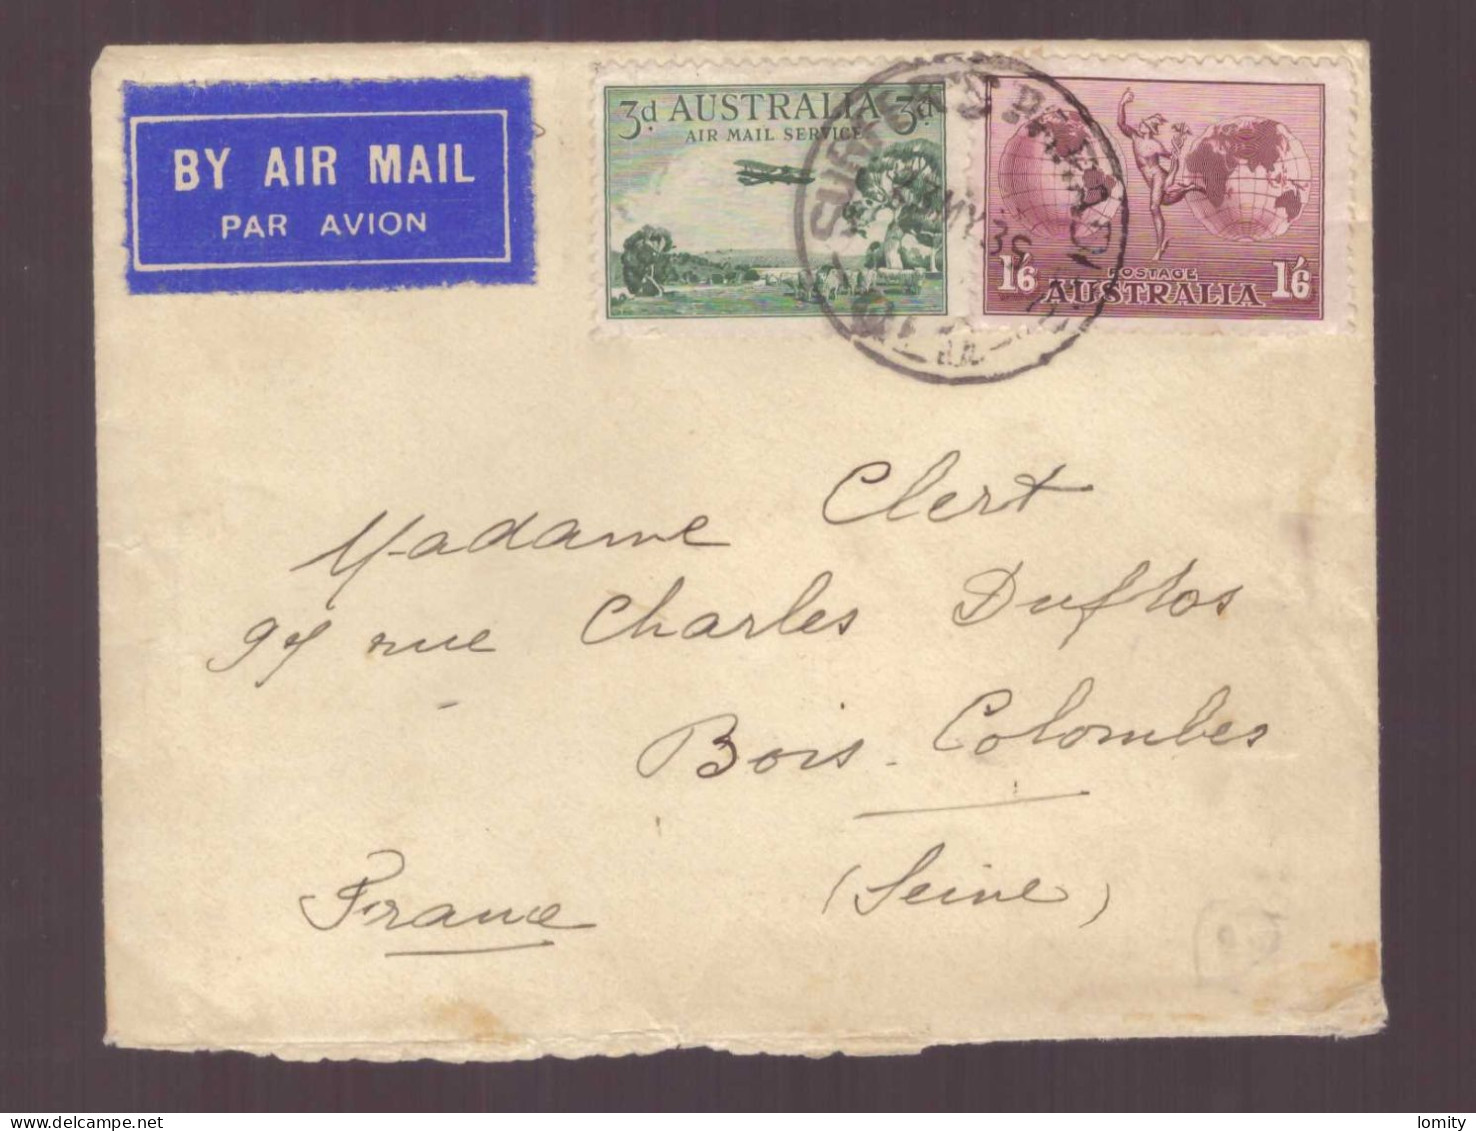 BY AIR MAIL
PAR AVION
3d AUSTRALIA 3d
AIR MAIL SERVICE
1/6 POSTAGE 1/6
AUSTRALIA
SURFERS PARADISE
27 MY 35
Madame Clert
97 rue Charles Duflos
Bois-Colombes
(Seine)
France
lomity